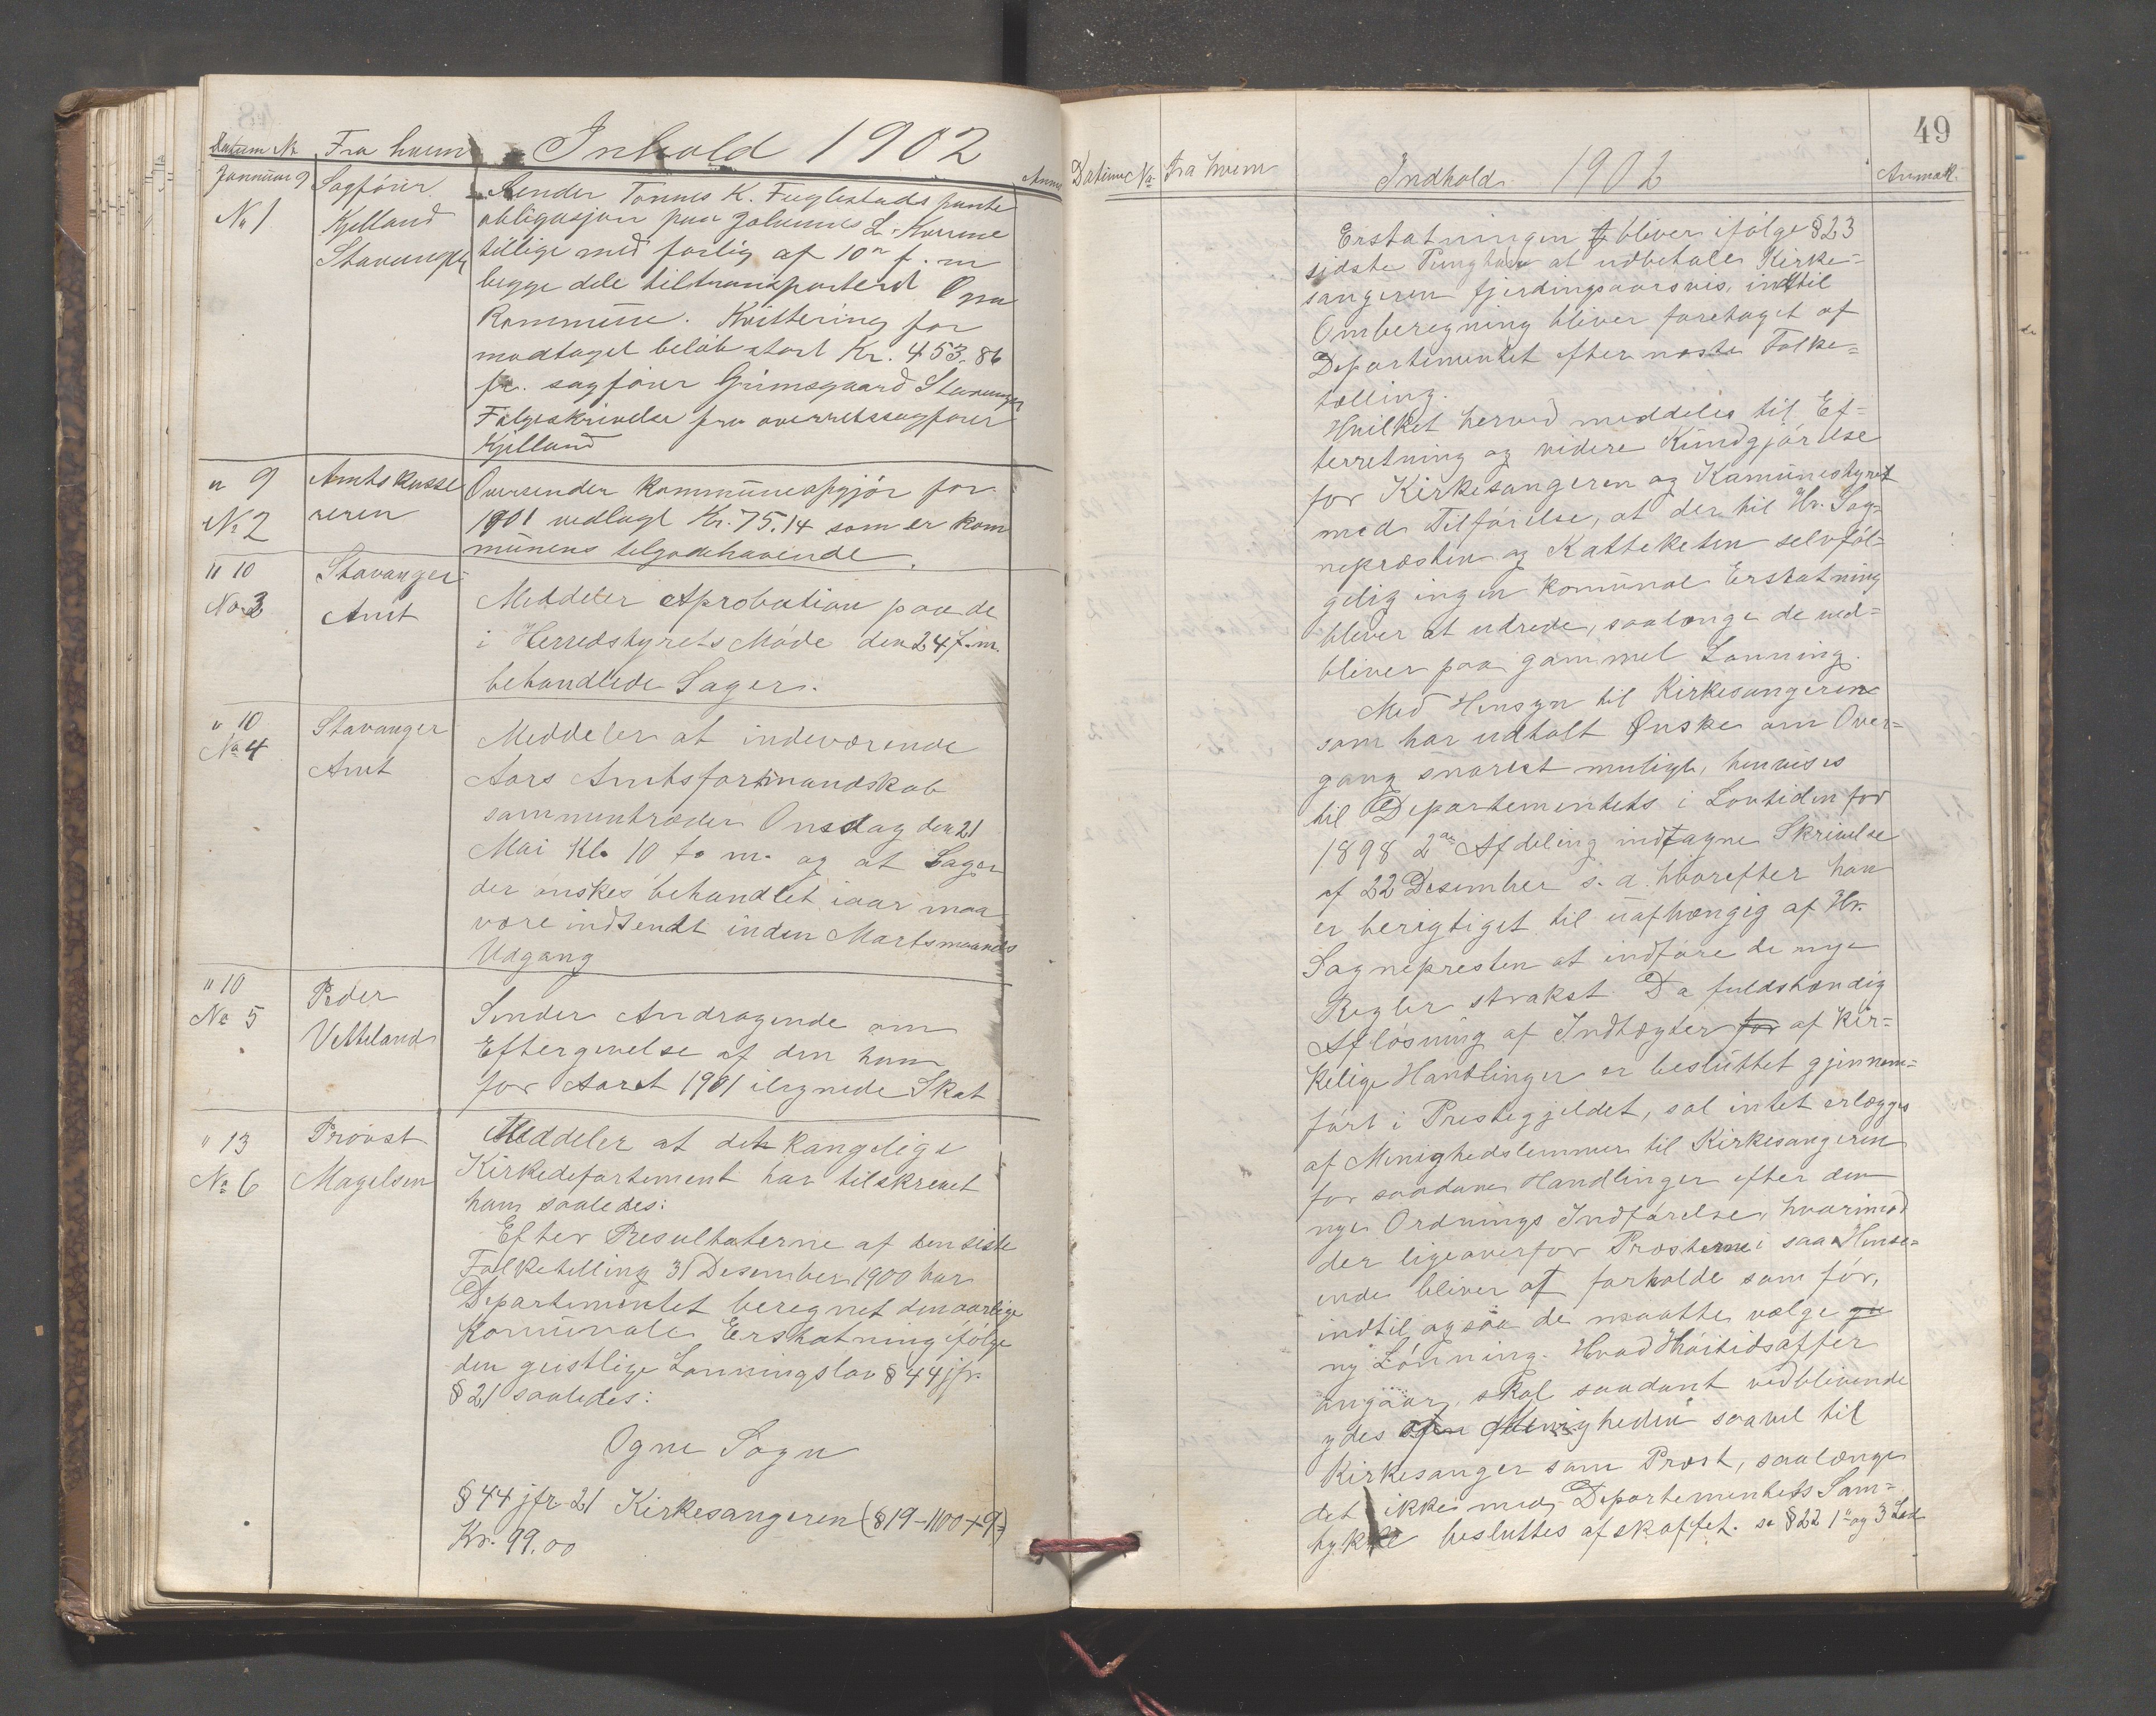 Datum No Fra hvem Inhold 1902 Anm
Januar 9 Sagförer Sender Tönnes K. Fuglestads pante
No 1 Kjelland obligasjon paa Johannes L. Kverme
Stavanger tillige med forlig af 10n f. m
begge dele tiltransporteret Ogna
Kommune. Kvittering for
modtaget belöb stort Kr. 453.86
fr. sagförer Grimsgaard Stavanger
Fölgeskrivelse fra overretssagförer
Kjelland
" 9 Amtskasse Oversender kommuneopgjör for
No 2 reren 1901 vedlagt Kr. 75.14 som er kom
munens tilgodehavende.
" 10 Stavanger
No 3 Amt Meddeler Aprobation paa de
i Herredstyrets Möde den 24 f.m.
behandlede Sager.
" 10 Stavanger Meddeler at indeværende
No 4 Amt Aars Amtsformandskab
sammentræder Onsdag den 21
Mai Kl. 10 f. m. og at Sager
der önskes behandlet iaar maa
være indsendt inden Martsmaaneds
Udgang
" 10 Peder Sender Andragende om
No 5 Vetteland Eftergivelse af den ham
for Aaret 1901 ilignede Skat
" 13 Provst Meddeler at det kongelige
No 6 Magelsen Kirkedepartement har tilskrevet
ham saaledes:
Efter Resultaterne af den siste
Folketelling 31 Desember 1900 har
Departementet beregnet den aarlige
Komunale Erstatning ifölge
den geistlige Lönningslov § 44 jfr.
§ 21 saaledes:
Ogne Sogn
§ 44 jfr. 21 Kirkesangeren (819-1100+9=)
Kr. 99.00
49
Datum No Fra hvem Indhold 1902 Anmærk.
Erstatningen bliver ifölge § 23
sidste at udbetale Kirke=
sangeren fjerdingsaarsvis, indtil
Omberegning bliver foretaget af
Departementet efter næste Folke=
tælling.
Hvilket herved meddeles til Ef=
terretning og videre Kundgjörelse
for Kirkesangeren og Kamünestyret
med Tilföielse, at der til Hr. Sog=
nepræsten og Katteketen selvföl=
gelig ingen komünal Erstatning
bliver at udrede, saalænge de ved=
bliver paa gammel Lönning.
Med Hensyn til Kirkesangeren
som har udtalt Ønske om Over=
gang snarest muligt, henvises
til Departementets i Lovtidin for
1898 2en Afdeling indtagne Skrivelse
af 22 Desember s. a. hvorefter han
er berigtiget til uafhængig af Hr.
Sognepresten at indföre de nye
Regler strakst. Da fuldstændig
Aflösning af Indtægter for af Kir=
kelige Handlinger er besluttet gjennem=
fört i Prestegjeldet, sal intet erlægges
af Menighedslemmer til Kirkesangeren
for saadane Handlinger efter den
nye Ordnings Indförelse, hvorimod
der ligeoverfor Prosterne i saa Hense=
ende bliver at forholde som för,
indtil ogsaa de maatte vælge
ny Lönning. Hvad Höitidsoffer
angaar, skal saadant vedblivende
ydes af Menigheden saavel til
Kirkesanger som Præst, saalænge
det ikke med Departementets Sam=
tykke besluttes afskaffet. se § 22 1te og 3 Led